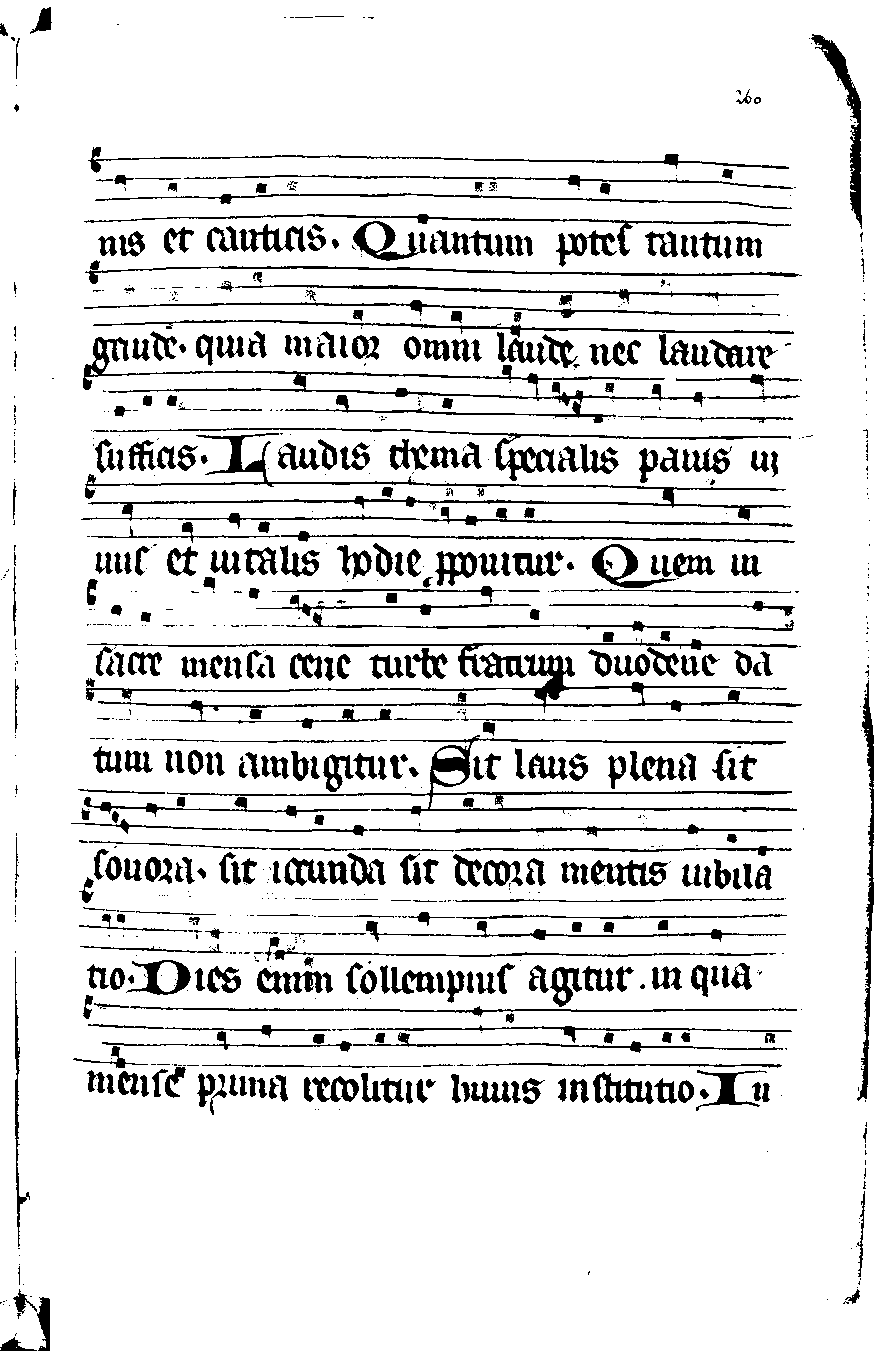 260
nis et canticis. Quantum potes tantum
gaude. quia maior omni laude nec laudare
sufficis. Laudis thema specialis panis ui
uus et uitalis hodie ꝓponitur. Quem in
sacre mensa cene turbe fratrum duodene da
tum non ambigitur. Sit laus plena sit
sonora. sit iocunda sit decora mentis iubila
tio. Dies enim sollempnis agitur. in qua
mense prima recolitur huius institutio. In